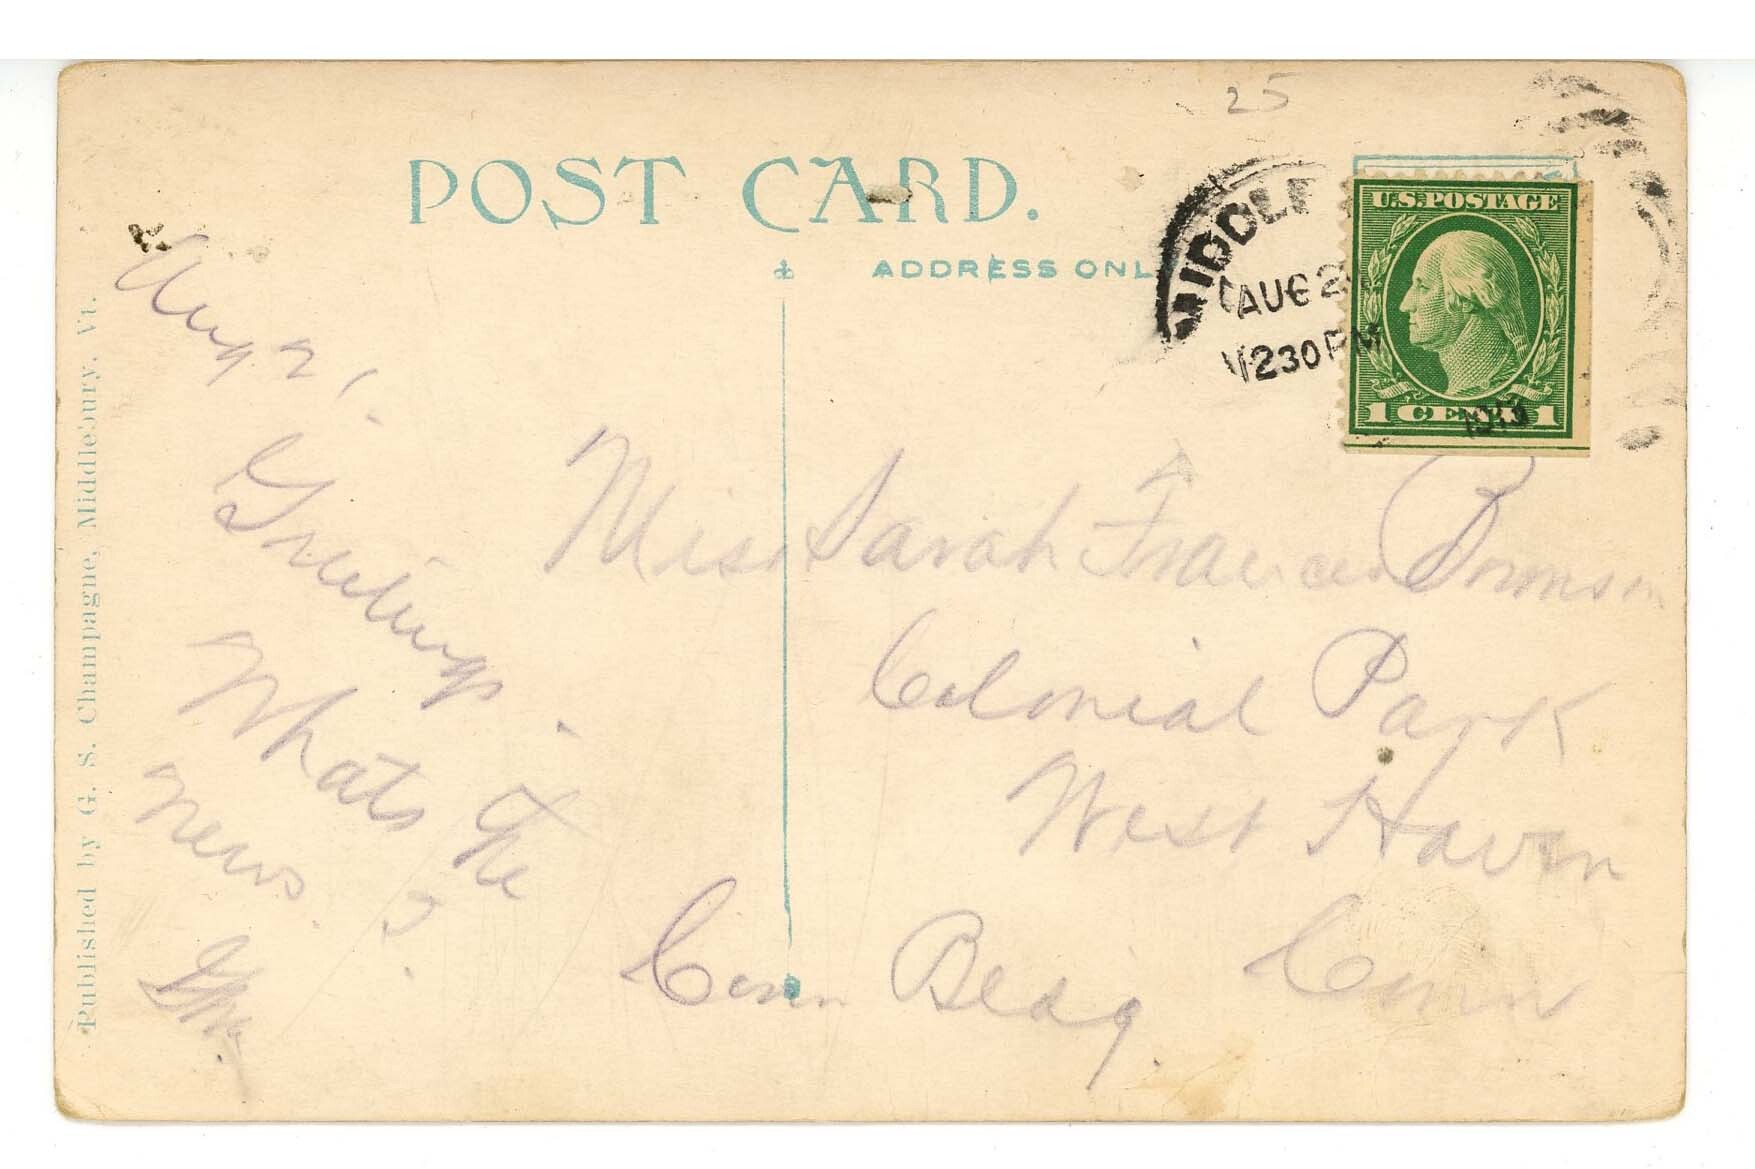 25
POST CARD.
ADDRESS ONL
MIDDLE
AUG 2
1230 PM
1913
U.S. POSTAGE
1 CENT 1
Aug 21.
Greetings.
Whats the
news.?
Miss Sarah Frances
Colonial Park
West Haven
Conn Bldg. Conn
Published by G. S. Champagne, Middlebury, Vt.